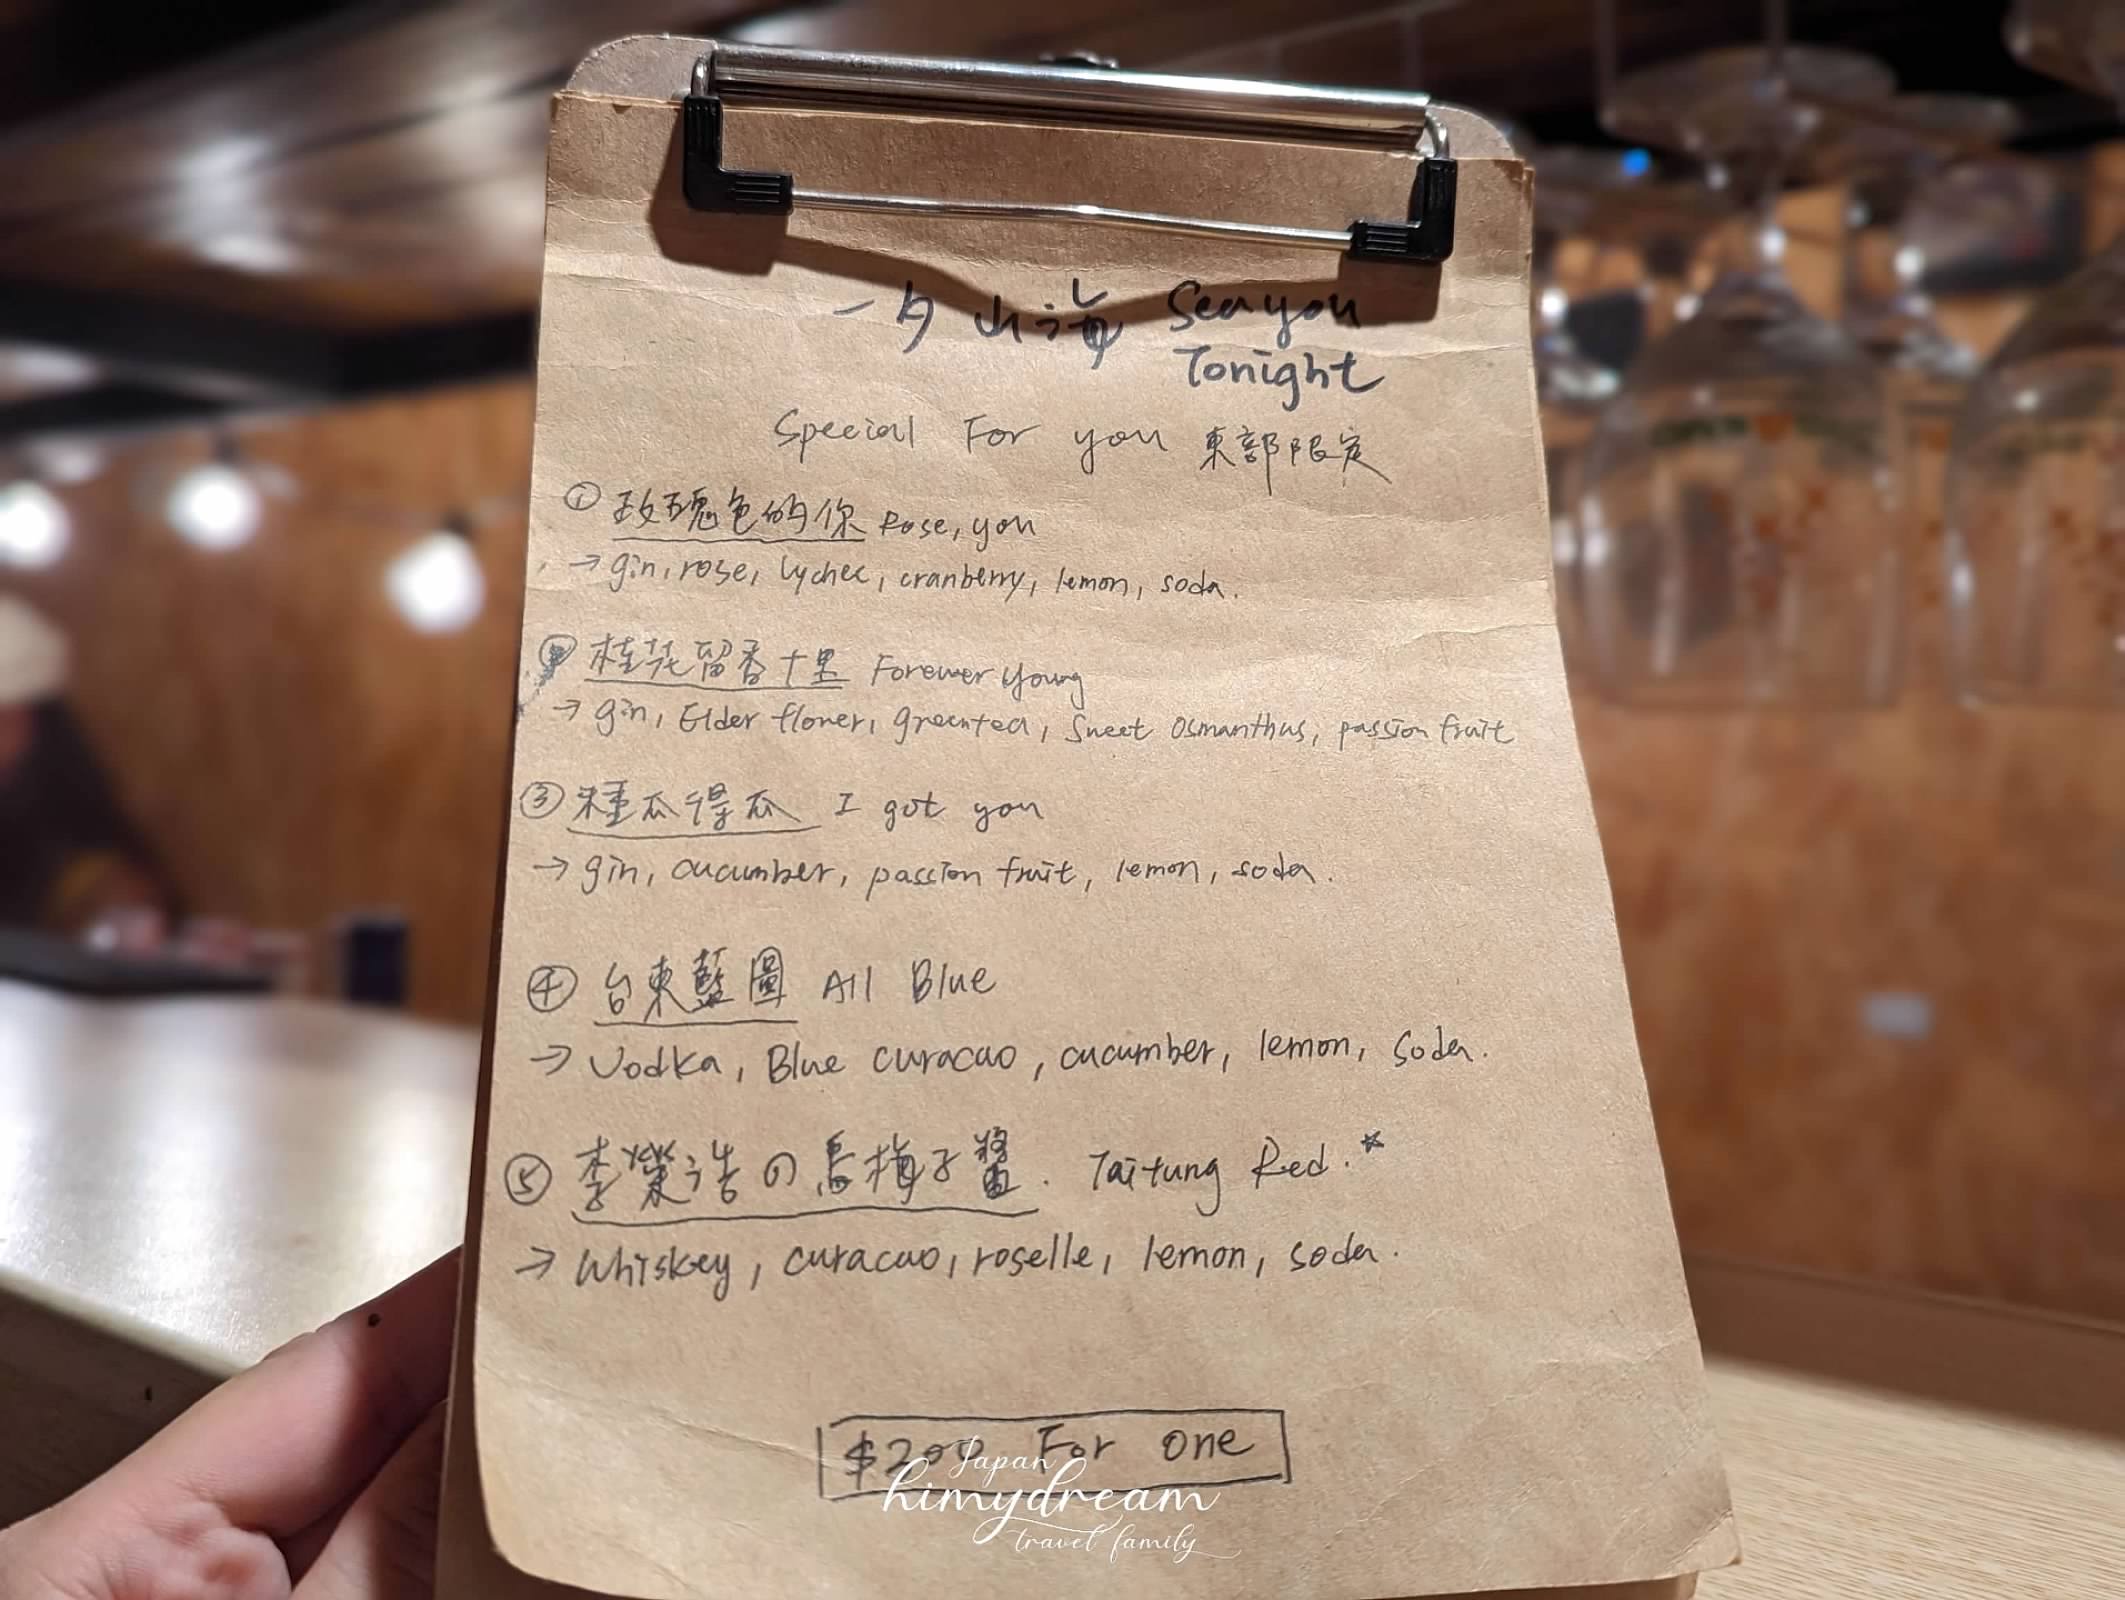 一夕山海 Sea you
Tonight
Special For you 東部限定
① 玫瑰色的你 Rose, you
→ gin, rose, lychee, cranberry, lemon, soda.
② 桂花留香十里 Forever Young
→ gin, Elder flower, greentea, Sweet Osmanthus, passion fruit
③ 種瓜得瓜 I got you
→ gin, cucumber, passion fruit, lemon, soda.
④ 台東藍圖 All Blue
→ Vodka, Blue curacao, cucumber, lemon, soda.
⑤ 李榮浩の烏梅子醬. Taitung Red.☆
→ Whiskey, curacao, roselle, lemon, soda.
$200 For one
Japan
himydream
travel family